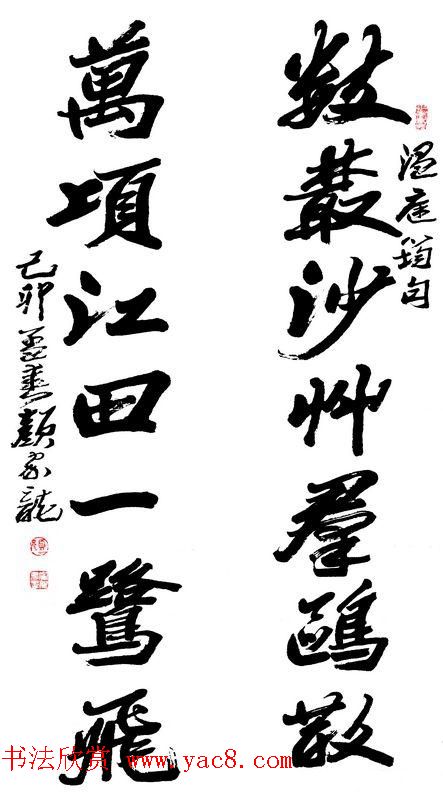 温庭筠句
數叢沙艸羣鷗散
萬頃江田一鷺飛
己卯 顏家龍
书法欣赏 www.yac8.com